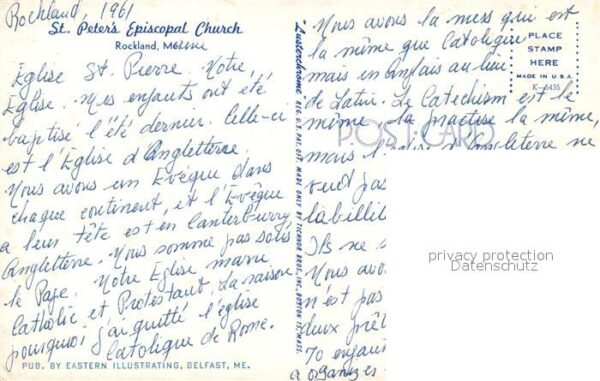 Rockland, 1961
St. Peter's Episcopal Church
Rockland, Maine
Église St. Pierre. Notre,
Église. Mes enfants ont été
baptise l'été dernier. Celle-ci
est l'Église d'Angleterre.
Nous avons un Evêque dans
chaque continent, et l'Evêque
a leur tête est en Canterburry,
Angleterre. Nous somme pas sous
le Pape. Notre Église
Catholic et Protestant. La raison
pourquoi j'ai quitté l'église
Catolique de Rome.
PUB. BY EASTERN ILLUSTRATING, BELFAST, ME.
"Lusterchrome" REG. U.S. PAT. OFF. MADE ONLY BY TICHNOR BROS., INC., BOSTON 15, MASS.
Nous avons la mess qui est
la même que Catolique
mais en Anglais au lieu
de Latin. Le Catechism est le
même, la practise la même,
mais l'église d'Angleterre ne
veut pas
Ils ne
Nous avo
n'est pas
deux prêt
70 enfant
a organizes
PLACE
STAMP
HERE
MADE IN U.S.A.
K-6435
POST CARD
privacy protection
Datenschutz